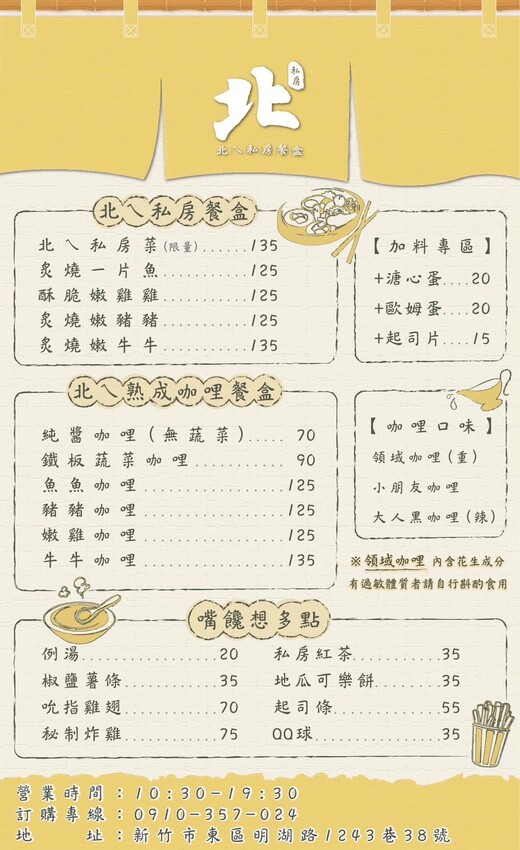 私房
北
北ㄟ私房餐盒
北ㄟ私房餐盒
北ㄟ私房菜(限量).......135
炙燒一片魚...............125
酥脆嫩雞雞...............125
炙燒嫩豬豬...............125
炙燒嫩牛牛...............135
【加料專區】
+溏心蛋....20
+歐姆蛋....20
+起司片....15
北ㄟ熟成咖哩餐盒
純醬咖哩(無蔬菜)..... 70
鐵板蔬菜咖哩............ 90
魚魚咖哩...................125
豬豬咖哩...................125
嫩雞咖哩...................125
牛牛咖哩...................135
【咖哩口味】
領域咖哩(重)
小朋友咖哩
大人黑咖哩(辣)
※領域咖哩 內含花生成分
有過敏體質者請自行斟酌食用
嘴饞想多點
例湯.................20
椒鹽薯條............35
吮指雞翅............70
秘制炸雞............75
私房紅茶...........35
地瓜可樂餅........35
起司條..............55
QQ球................35
營業時間：10:30-19:30
訂購專線：0910-357-024
地　　址：新竹市東區明湖路1243巷38號